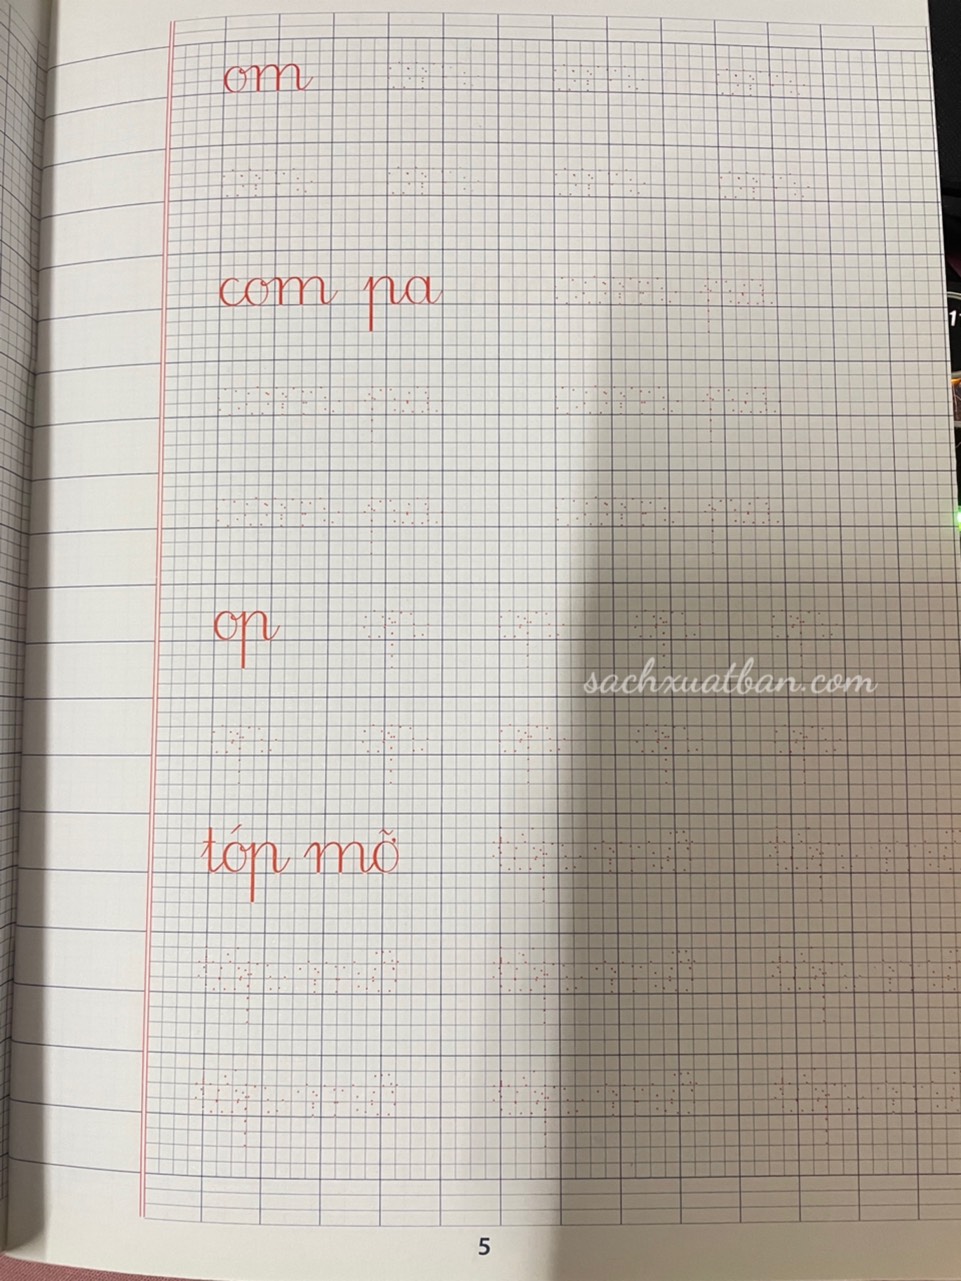 om
com pa
op
sachxuatban.com
tóp mỡ
5